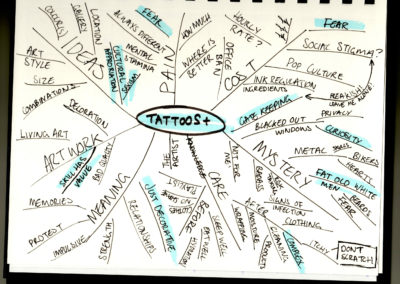 TATTOOS +
IDEAS
COLOUR(S)
GALLERY
LOCATION
CULTURAL
ART
STYLE
SIZE
COMBINATIONS
PAIN
FEAR
ALWAYS DIFFERENT
MENTAL
STAMINA
WHERE IS
BETTER
HOW MUCH
COST
HOURLY
RATE?
OFFICE
BAN
INK REGULATION
INGREDIENTS
POP CULTURE
SOCIAL STIGMA?
FEAR
MYSTERY
GATE KEEPING
BLACKED OUT
WINDOWS
PRIVACY
CURIOSITY
METAL
BIKERS
FAT OLD WHITE
MEN
BEARDS
FEAR
CARE
BEFORE
SLEEP WELL
EAT WELL
AFTER
WRAPPING
MOISTURISE
PRODUCTS
CLOTHING
SIGNS OF
INFECTION
ITCHY
DON'T
SCRATCH
THE
ARTIST
MEANING
JUST DECORATIVE
RELATIONSHIPS
STRENGTH
IMPULSIVE
PROTEST
MEMORIES
ARTWORK
SKILL HAS
VALUE
BAD QUALITY
LIVING ART
DECORATION